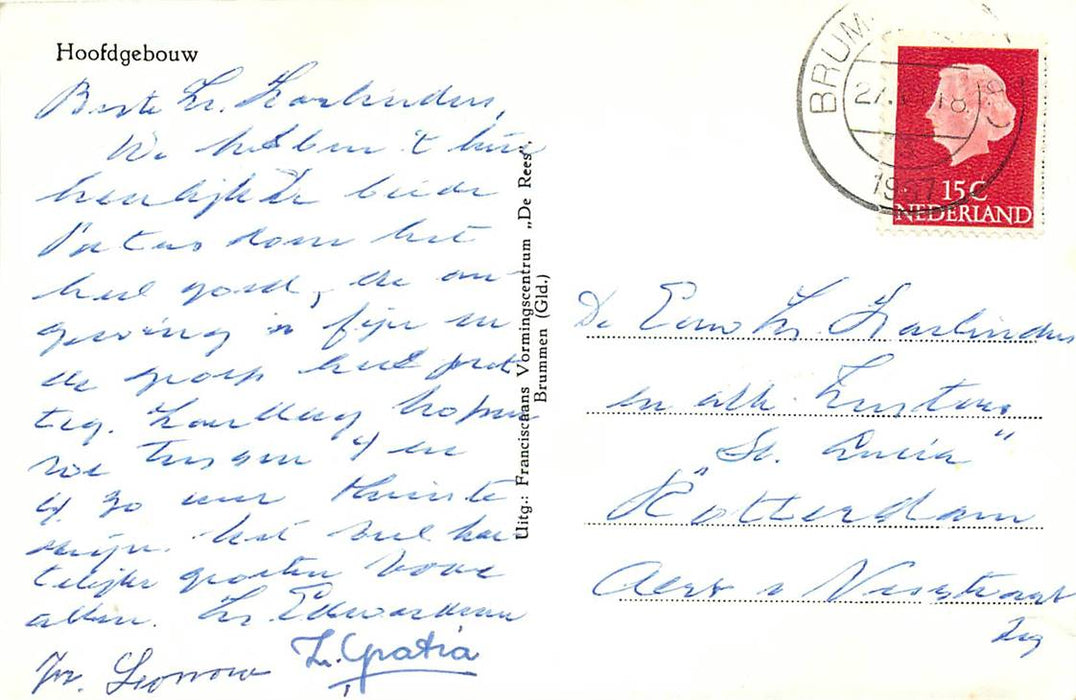 Hoofdgebouw
Beste Zr.
We hebben 't hier
heerlijk. De
Pater doen het
heel goed, de om-
geving is fijn en
de groep heel pret-
tig. Zondag hopen
we tussen 4 en
½ 7 weer thuis te
zijn. Met veel har-
telijke groeten voor
allen. Zr. Edwardina
Zr. Gratia
Zr.
Uitg.: Franciscaans Vormingscentrum „De Rees”,
Brummen (Gld.)
BRUM
1967
15C
NEDERLAND
De Eerw Zr.
en alle Zusters
"St. Lucia"
Rotterdam
Aert v Nesstraat